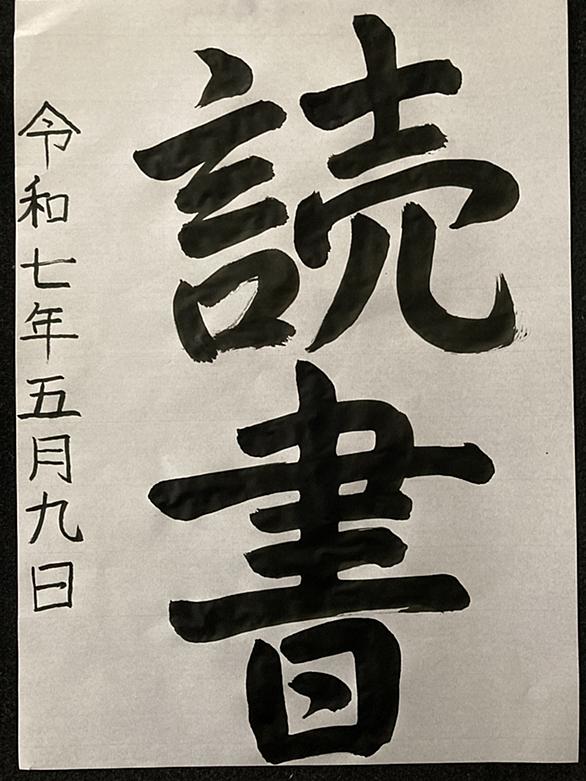 読書
令和七年五月九日